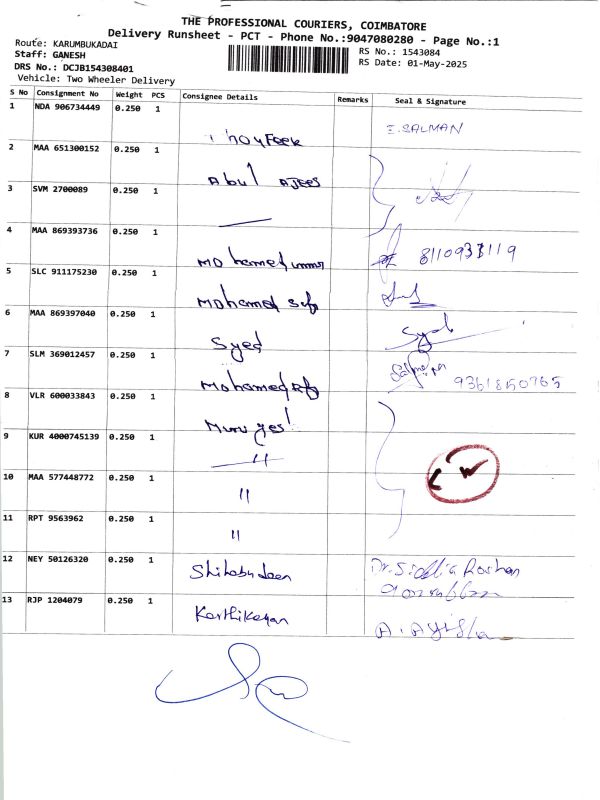 THE PROFESSIONAL COURIERS, COIMBATORE
Delivery Runsheet - PCT - Phone No.:9047080280 - Page No.:1
Route: KARUMBUKADAI
Staff: GANESH
DRS No.: DCJB154308401
Vehicle: Two Wheeler Delivery
RS No.: 1543084
RS Date: 01-May-2025
S No Consignment No Weight PCS Consignee Details Remarks Seal & Signature
1 NDA 906734449 0.250 1 Thoufeek I.SALMAN
2 MAA 651300152 0.250 1 Abul AJees
3 SVM 2700089 0.250 1
4 MAA 869393736 0.250 1 Mohamed ummr 8110933119
5 SLC 911175230 0.250 1 Mohamed
6 MAA 869397040 0.250 1 Syed Syed
7 SLM 369012457 0.250 1 Mohamed 9361850765
8 VLR 600033843 0.250 1 Murugesh
9 KUR 4000745139 0.250 1 "
10 MAA 577448772 0.250 1 "
11 RPT 9563962 0.250 1 "
12 NEY 50126320 0.250 1 Shihabudeen Dr. Roshan
13 RJP 1204079 0.250 1 Karthikeyan A. Ayisha